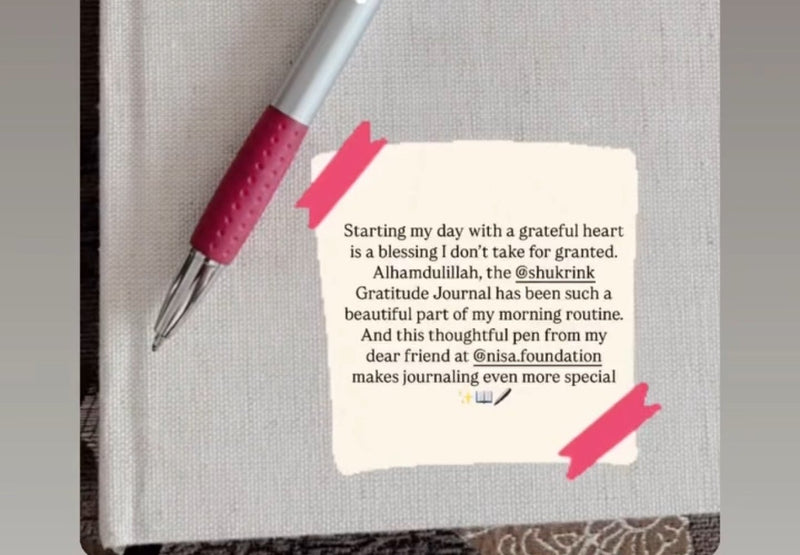 Starting my day with a grateful heart
is a blessing I don't take for granted.
Alhamdulillah, the @shukrink
Gratitude Journal has been such a
beautiful part of my morning routine.
And this thoughtful pen from my
dear friend at @nisa.foundation
makes journaling even more special
✨📖🖊️